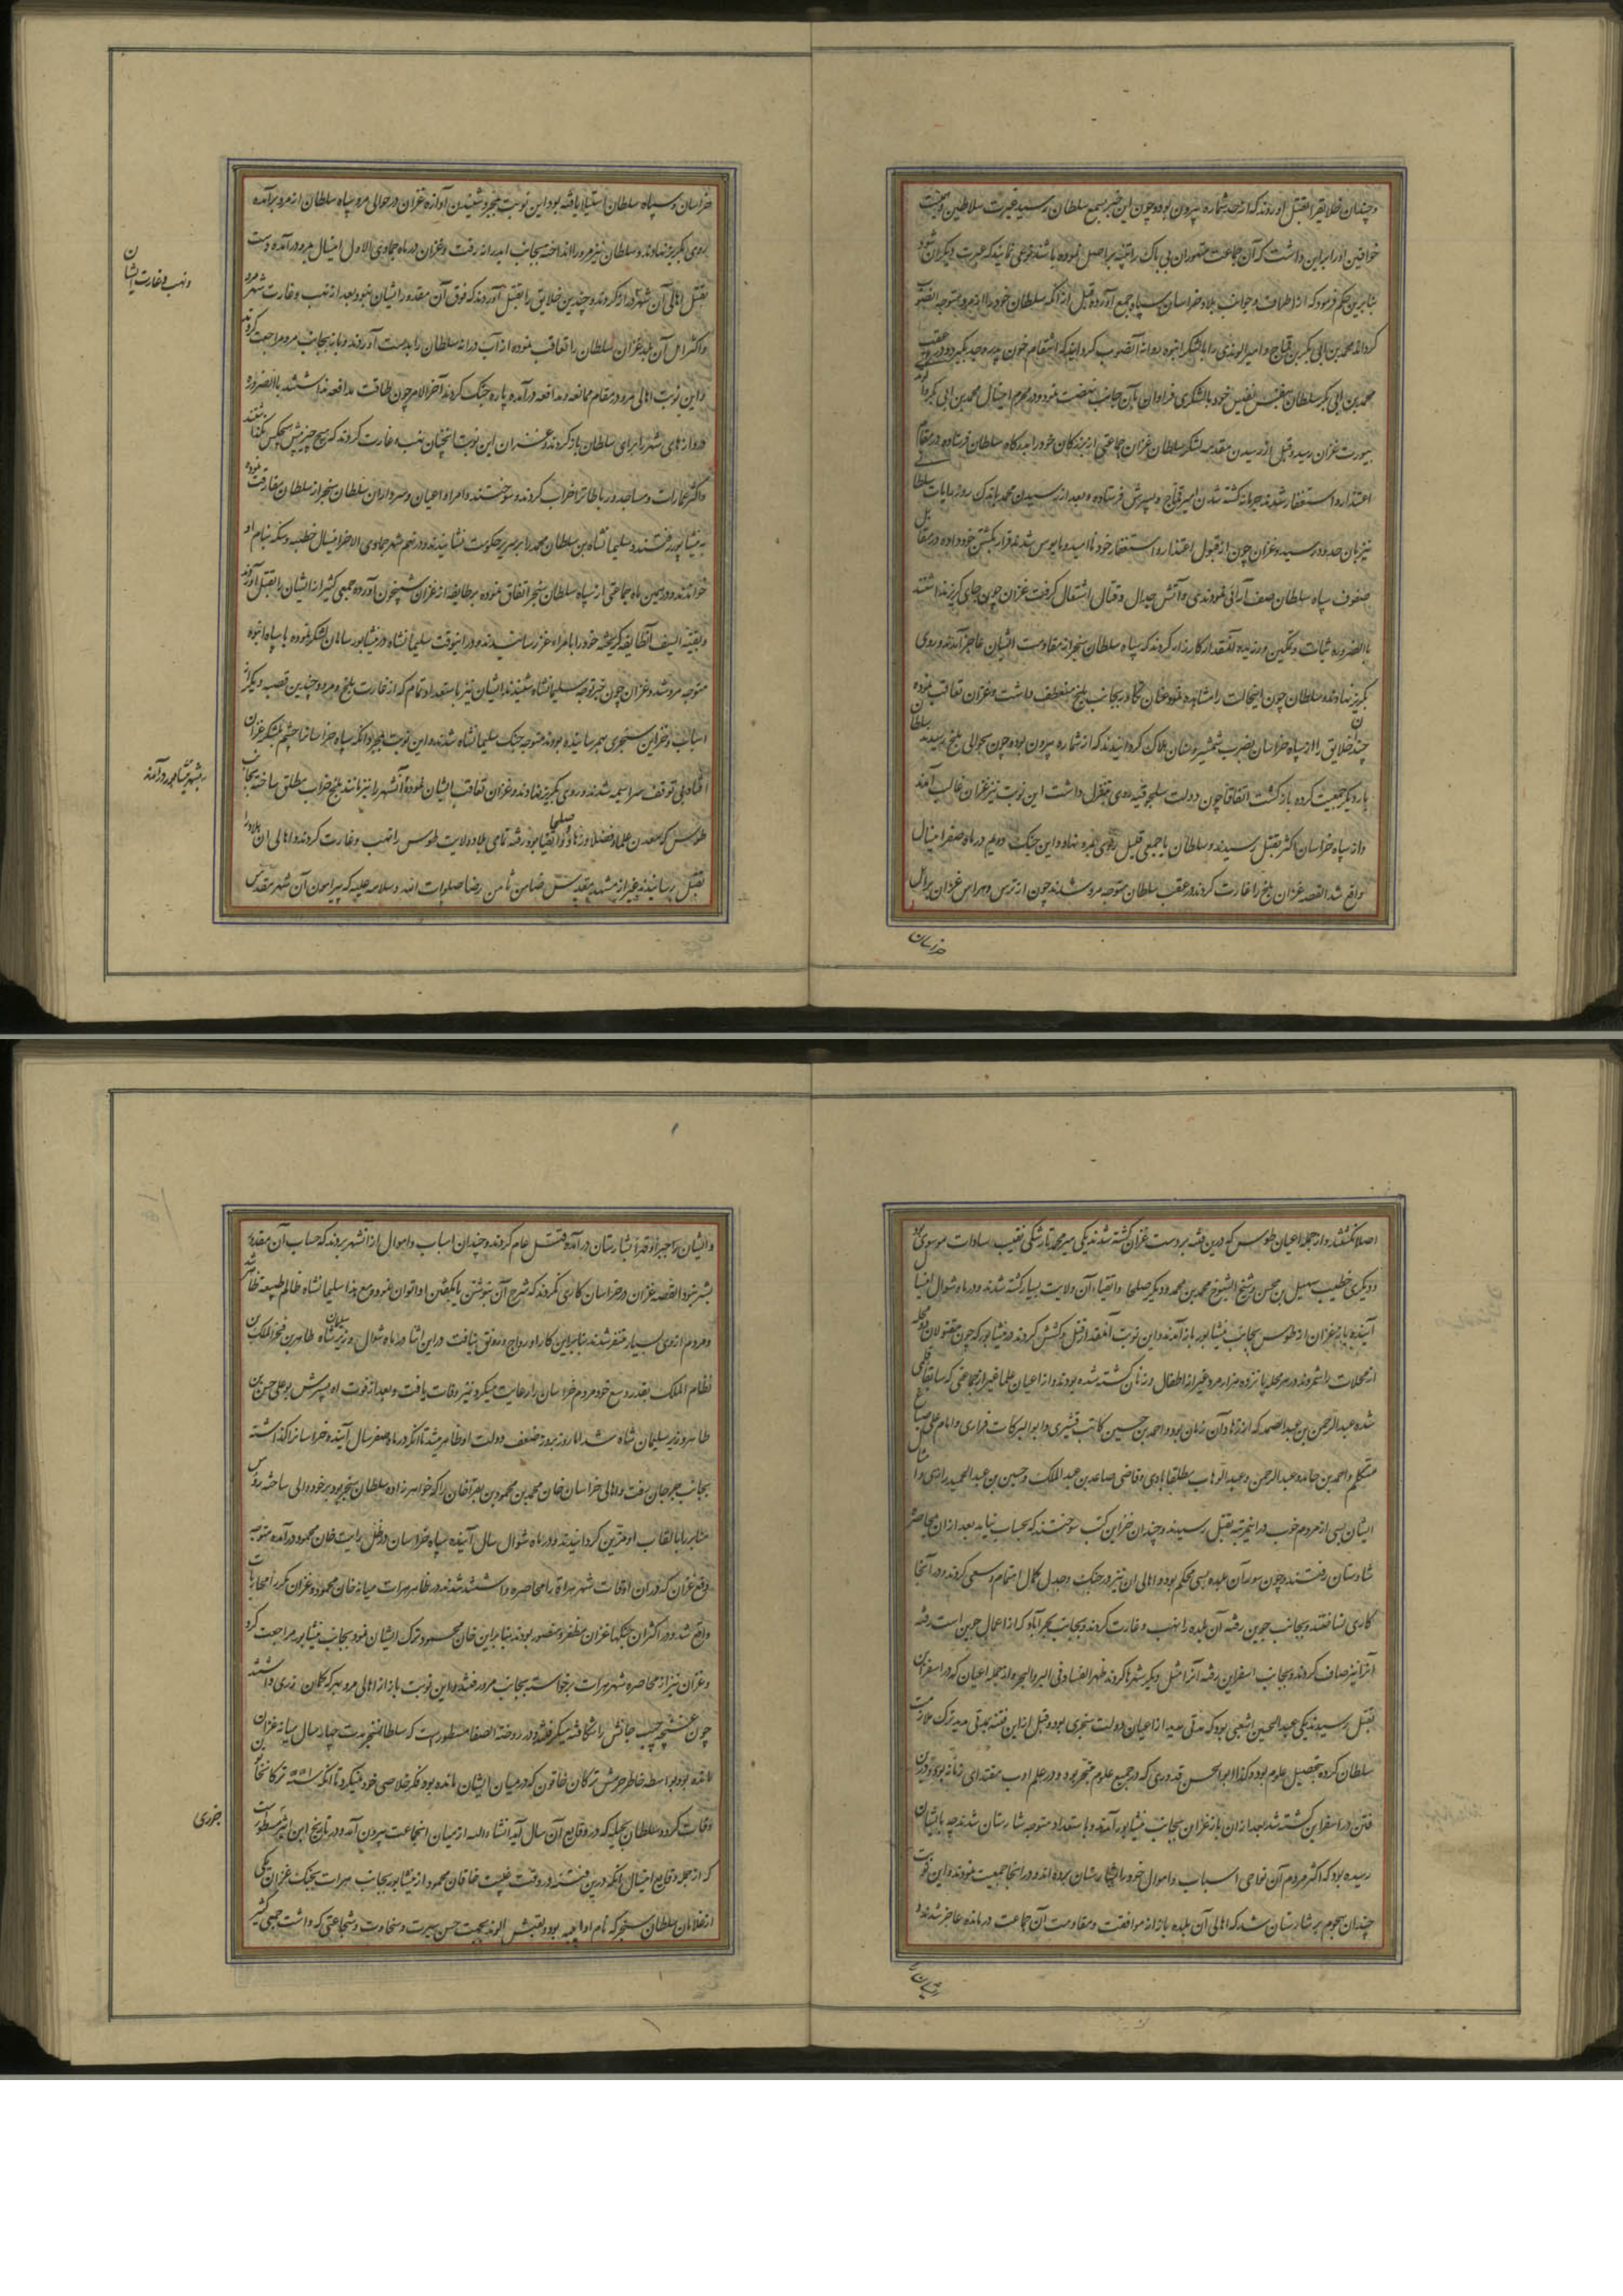 و چندان خلایق را بقتل آوردند که از حد شماره بیرون بود و چون این خبر بسمع سلطان رسید غیرت سلاطین و حمیت
خواقین او را بر این داشت که آن جماعت مقهوران بی باک را تنبیه بر اصل نموده باشد نوعی نمایند که عبرت دیگران شود
بنابرین حکم فرمود که از اطراف و جوانب بلاد خراسان سپاه جمع آورده قبل از آنکه سلطان خود از مرو متوجه آنصوب
کرداند محمد بن ابی بکر بن قماج و امیر را با لشکر انبوه روانه آنصوب کردانید که انتقام خون پدر و جد بگیرد و در عقب
محمد بن ابی بکر سلطان بنفس نفیس خود با لشکری فراوان بآن جانب نهضت نمود و در محرم امینسال محمد بن ابی بکر
بیورت غزان رسید و قبل از رسیدن مقدمه لشکر سلطان غزان جماعتی از بزرکان خود را بدرکاه سلطان فرستاده در مقام
اعتذار و استغفار شدند جرمانه کشته شدن امیر قماج و پسرش فرستاده و بعد از رسیدن محمد باندک روز رایات سلطان
نیز بآن حدود رسید و غزان چون از قبول اعتذار و استغفار خود ناامید و مایوس شدند قرار بکشتن خود داده در مقابل
صفوف سپاه سلطان صف آرائی نمودند آتش جدال و قتال اشتعال کرفت غزان چون جای کریز نداشتند
بالضروره ثبات و تمکین ورزیده آنقدر کارزار کردند که سپاه سلطان سنجر از مقاومت ایشان عاجز آمدند و روی
بکریز نهادند و سلطان چون اینحالت را مشاهده نمود عنان بجانب بلخ منعطف داشت و غزان تعاقب نموده
چند خلایق را از سپاه خراسان بضرب شمشیر و سنان هلاک کردانیدند که از شماره بیرون بود و چون سلطان بحوالی بلخ رسید
بار دیگر جمعیت کرده بازگشت اتفاقا چون دولت سلجوقیه روی بتنزل داشت این نوبت نیز غزان غالب آمدند
و از سپاه خراسان اکثر بقتل رسیدند و سلطان با جمعی قلیل روی بمرو نهاد و این جنک دویم در ماه صفر امینسال
واقع شد القصه غزان بلخ را غارت کردند در عقب سلطان متوجه مرو شدند چون از ترس و هراس غزان بر اهل
خراسان
خراسان و سپاه سلطان استیلا یافته بود این نوبت بمجرد شنیدن آوازه غزان در حوالی مرو سپاه سلطان از مرو برآمده
روی بکریز نهادند و سلطان نیز مرو را انداخته بجانب اندرابه رفت و غزان در ماه جمادی الاول امینسال بمرو درآمده دست
و نهب و غارت ایشان
بقتل اهالی آن شهر دراز کردند و چندین خلایق را بقتل آوردند که فوق آن مقدور ایشان نبود بعد از نهب و غارت شهر مرو
و اکثر اهل آن بلده غزان سلطان را تعاقب نموده از اندرابه سلطان را بدست آوردند و باز بجانب مرو مراجعت کردند
و این نوبت اهالی مرو در مقام ممانعه و مدافعه درآمده پاره جنک کردند آخر الامر چون طاقت مدافعه نداشتند بالضروره
دروازهای شهر را برای سلطان باز کردند و غزان این نوبت آنچنان نهب و غارت کردند که هیچ چیز پیش هیچکس نگذاشتند
و اکثر عمارات و مساجد و رباطها را خراب کردند و سوختند و امرا و اعیان و سرداران سلطان سنجر از سلطان مفارقت نموده
به نیشابور رفتند و سلیمانشاه بن سلطان محمد را بر سریر حکومت نشانیدند و در نهم شهر جمادی الاخر امینسال خطبه و سکه بنام او
خواندند و در همین ماه جماعتی از سپاه سلطان سنجر اتفاق نموده بر طایفه از غزان شبیخون آورده جمعی کثیر از ایشان را بقتل آوردند
و بقیة السیف آنطایفه کریخته خود را بامراء غز رسانیدند و در اینوقت سلیمانشاه در نیشابور سامان لشکر نموده با سپاه انبوه
متوجه مرو شد و غزان چون خبر توجه سلیمانشاه شنیدند ایشان نیز باستعداد تمام که از غارت بلخ و مرو و چندین قصبه دیگر از
اسباب و خزاین سنجری بهم رسانیده بودند متوجه جنک سلیمانشاه شدند و این نوبت بمجرد آنکه سپاه خراسانرا چشم بلشکر غزان
افتاد بی توقف سراسیمه شدند و روی بکریز نهادند و غزان تعاقب ایشان نموده آنشهر را نیز مانند بلخ خراب مطلق ساخته بجانب
بشهر نیشابور درآمدند
طوس که معدن علما و فضلا و زهاد و صلحا و اتقیا بود رفته تمامی بلاد ولایت طوس را نهب و غارت کردند و اهالی آن بلاد را
بقتل رسانیدند بغیر از مشهد مقدس ضامن ثامن رضا صلوات الله و سلامه علیه که پیرامون آن شهر مقدس
اصلا نکشتند و از جمله اعیان طوس که درین فتنه بر دست غزان کشته شدند یکی میر محمد نقیب سادات موسوی بود
و دیگری خطیب بن محسن و شیخ الشیوخ محمد بن محمد و دیگر صلحا و اتقیاء آن ولایت بسیار کشته شدند و در ماه شوال امینسال
آینده باز غزان از طوس بجانب نیشابور باز آمدند و این نوبت آنقدر از قتل و کشش کردند در نیشابور که چون مقتولان دو محله
از محلات را شمردند در هر محله پانزده هزار مرد غیر از اطفال و زنان کشته شده بودند و از اعیان علما غیر از جماعتی که سابقا قلمی
شده عبدالرحمن بن عبدالصمد که از زهاد آن زمان بود و احمد بن حسین کاتب قشیری و ابوالبرکات فراوی و امام علی صباغ
متکلم و احمد بن حامد و عبدالرحمن و عبدالوهاب ملقابادی و قاضی صاعد بن عبدالملک و حسین بن عبدالحمید رازی و امثال
ایشان بسی از مردم خوب در اینمرتبه بقتل رسیدند و چندان خزاین کتب سوختند که بحساب نیاید بعد از آن بمحاصره
شارستان رفتند و چون سور آن بلده بسی محکم بود و اهالی آن نیز در جنک و جدل کمال اهتمام و سعی کردند در آنجا
کاری نساختند و بجانب جوین رفته آن بلده را نهب و غارت کردند و بجانب بحرآباد که از اعمال جوین است رفته
آنرا نیز صاف کردند و بجانب اسفراین رفته آنرا مثل دیگر شهرها کردند ظهر الفساد فی البر و البحر و از جمله اعیان که در اسفراین
بقتل رسیدند یکی عبدالحسین اشعبی بود که مدتی مدید از اعیان دولت سنجری بود و قبل از این فتنه بمدتی مدید ترک ملازمت
سلطان کرده بتحصیل علوم بود و کذا ابوالحسن قدوری که در جمیع علوم متبحر بود و در علم ادب مقتدای زمانه بود درین
فتن در اسفراین کشته شد بعد از آن باز غزان بجانب نیشابور آمدند و باستعداد متوجه شارستان شدند چه بایشان
رسیده بود که اکثر مردم آن نواحی اسباب و اموال خود را بشارستان برده اند و در آنجا جمعیت نموده و این نوبت
چندان هجوم بر شارستان شد که اهالی آن بلده باز از موافقت و مقاومت آن جماعت درمانده عاجز شدند و
و ایشان را جبرا و قهرا بشارستان درآمده قتل عام کردند و چندان اسباب و اموال از آنشهر بردند که حساب آن مقدور
بشر نبود القصه غزان در خراسان کاری نکردند که شرح آن بنوشتن یا بگفتن ادا توان نمود و مع هذا سلیمانشاه ظالم طبیعه ظاهر شد
و مردم از وی بسیار متنفر شدند بنابراین کار او رواج و رونق نیافت درین اثنا در ماه شوال وزیر سلیمان شاه طاهر بن فخرالملک بن
نظام الملک بقدر وسع خود مردم خراسان را رعایت میکرد نیز وفات یافت و بعد از فوت او پسرش بوعلی حسن بن
طاهر وزیر سلیمان شاه شد اما روز بروز ضعف دولت او ظاهر میشد تا آنکه در ماه صفر سال آینده خراسانرا کذاشته
بجانب جرجان رفت و اهالی خراسان خان محمود بن محمد بن بغراخان را که خواهر زاده سلطان سنجر بود بر خود والی ساخته رؤس
منابر را بالقاب او مزین کردانیدند و در ماه شوال سال آینده سپاه خراسان در ظل رایت خان محمود درآمده متوجه
دفع غزان که در آن اوقات شهر هراة را محاصره داشتند شدند در ظاهر هرات میانه خان محمود و غزان مکررا محاربات
واقع شد و در اکثر آن جنگها غزان مظفر و منصور بودند بنابراین خان محمود ترک ایشان نمود بجانب نیشابور مراجعت کرد
و غزان نیز از محاصره شهر هرات برخواسته بجانب مرو رفتند و این نوبت باز از اهالی مرو بهر که کمان زری داشتند
چون غنچه جیب جانش را شکافته میکرفتند و در روضة الصفا مسطور است که سلطان سنجر مدت چهار سال میانه غزان
مانده بود بواسطه خاطر حرمش ترکان خاتون که در میان ایشان مانده بود فکر خلاصی خود نمیکرد تا آنکه سنه ۵۵۱ ترکان خاتون
وفات کرد و سلطان بحیله که در وقایع آن سال آید انشاء الله از میان آنجماعت بیرون آمد و در تاریخ ابن اثیر جزری مسطور است
جزری
که از جمله وقایع امینسال آنکه درین فتنه در وقت غیبت خاقان محمود از نیشابور بجانب هرات بجنک غزان یکی
از غلامان سلطان سنجر که نام او ای ابه بود و لقبش المؤید بجهت حسن سیرت و سخاوت و شجاعتی که داشت جمعی کثیر